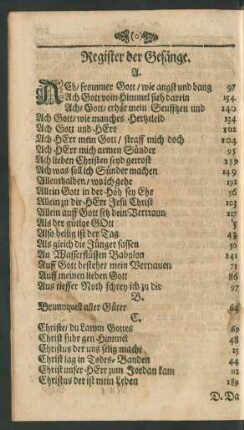 Register der Gesänge.
A.
ACh/ frommer Gott/ wie angst und bang 97
Ach Gott vom Himmel sieh darein 154
Ach/ Gott/ erhör mein Seufftzen und 140
Ach Gott/ wie manches Hertzeleid 134
Ach Gott und HErr 102
Ach HErr mein Gott/ straff mich doch 104
Ach HErr mich armen Sünder 95
Ach lieben Christen seyd getrost 139
Ach was soll ich Sünder machen 149
Allenthalben/ wo ich gehe 192
Allein Gott in der Höh sey Ehr 56
Allein zu dir HErr Jesu Christ 103
Allein auff Gott setz dein Vertraun 127
Als der gütige GOtt 5
Also heilig ist der Tag 43
Als gleich die Jünger sassen 50
An Wasserflüssen Babylon 141
Auff Gott bestehet mein Vertrauen 71
Auff meinen lieben Gott 86
Aus tieffer Noth schrey ich zu dir 97
B.
Brunnquell aller Güter 64
C.
Christe/ du Lamm Gottes 69
Christ fuhr gen Himmel 48
Christus der uns selig macht 25
Christ lag in Todes-Banden 44
Christ unser HErr zum Jordan kam 111
Christus der ist mein Leben 189
D. Da